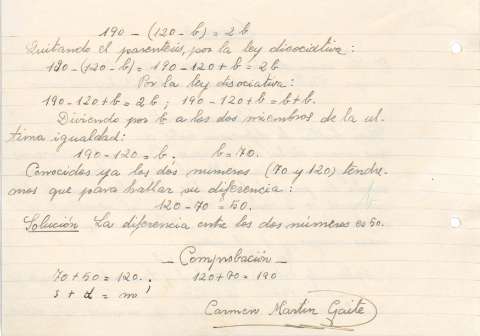 190 - (120 - b) = 2 b
Quitando el parentesis, por la ley disociativa:
190 - (120 - b) = 190 - 120 + b = 2 b
Por la ley disociativa:
190 - 120 + b = 2 b ; 190 - 120 + b = b + b.
Diviendo por b a los dos miembros de la ul-
tima igualdad:
190 - 120 = b . b = 70.
Conocidos ya los dos numeros (70 y 120) tendre-
mos que para hallar su diferencia:
120 - 70 = 50.
Solución La diferencia entre los dos números es 50.
- Comprobación -
70 + 50 = 120. ; 120 + 70 = 190
s + d = m
Carmen Martin Gaite